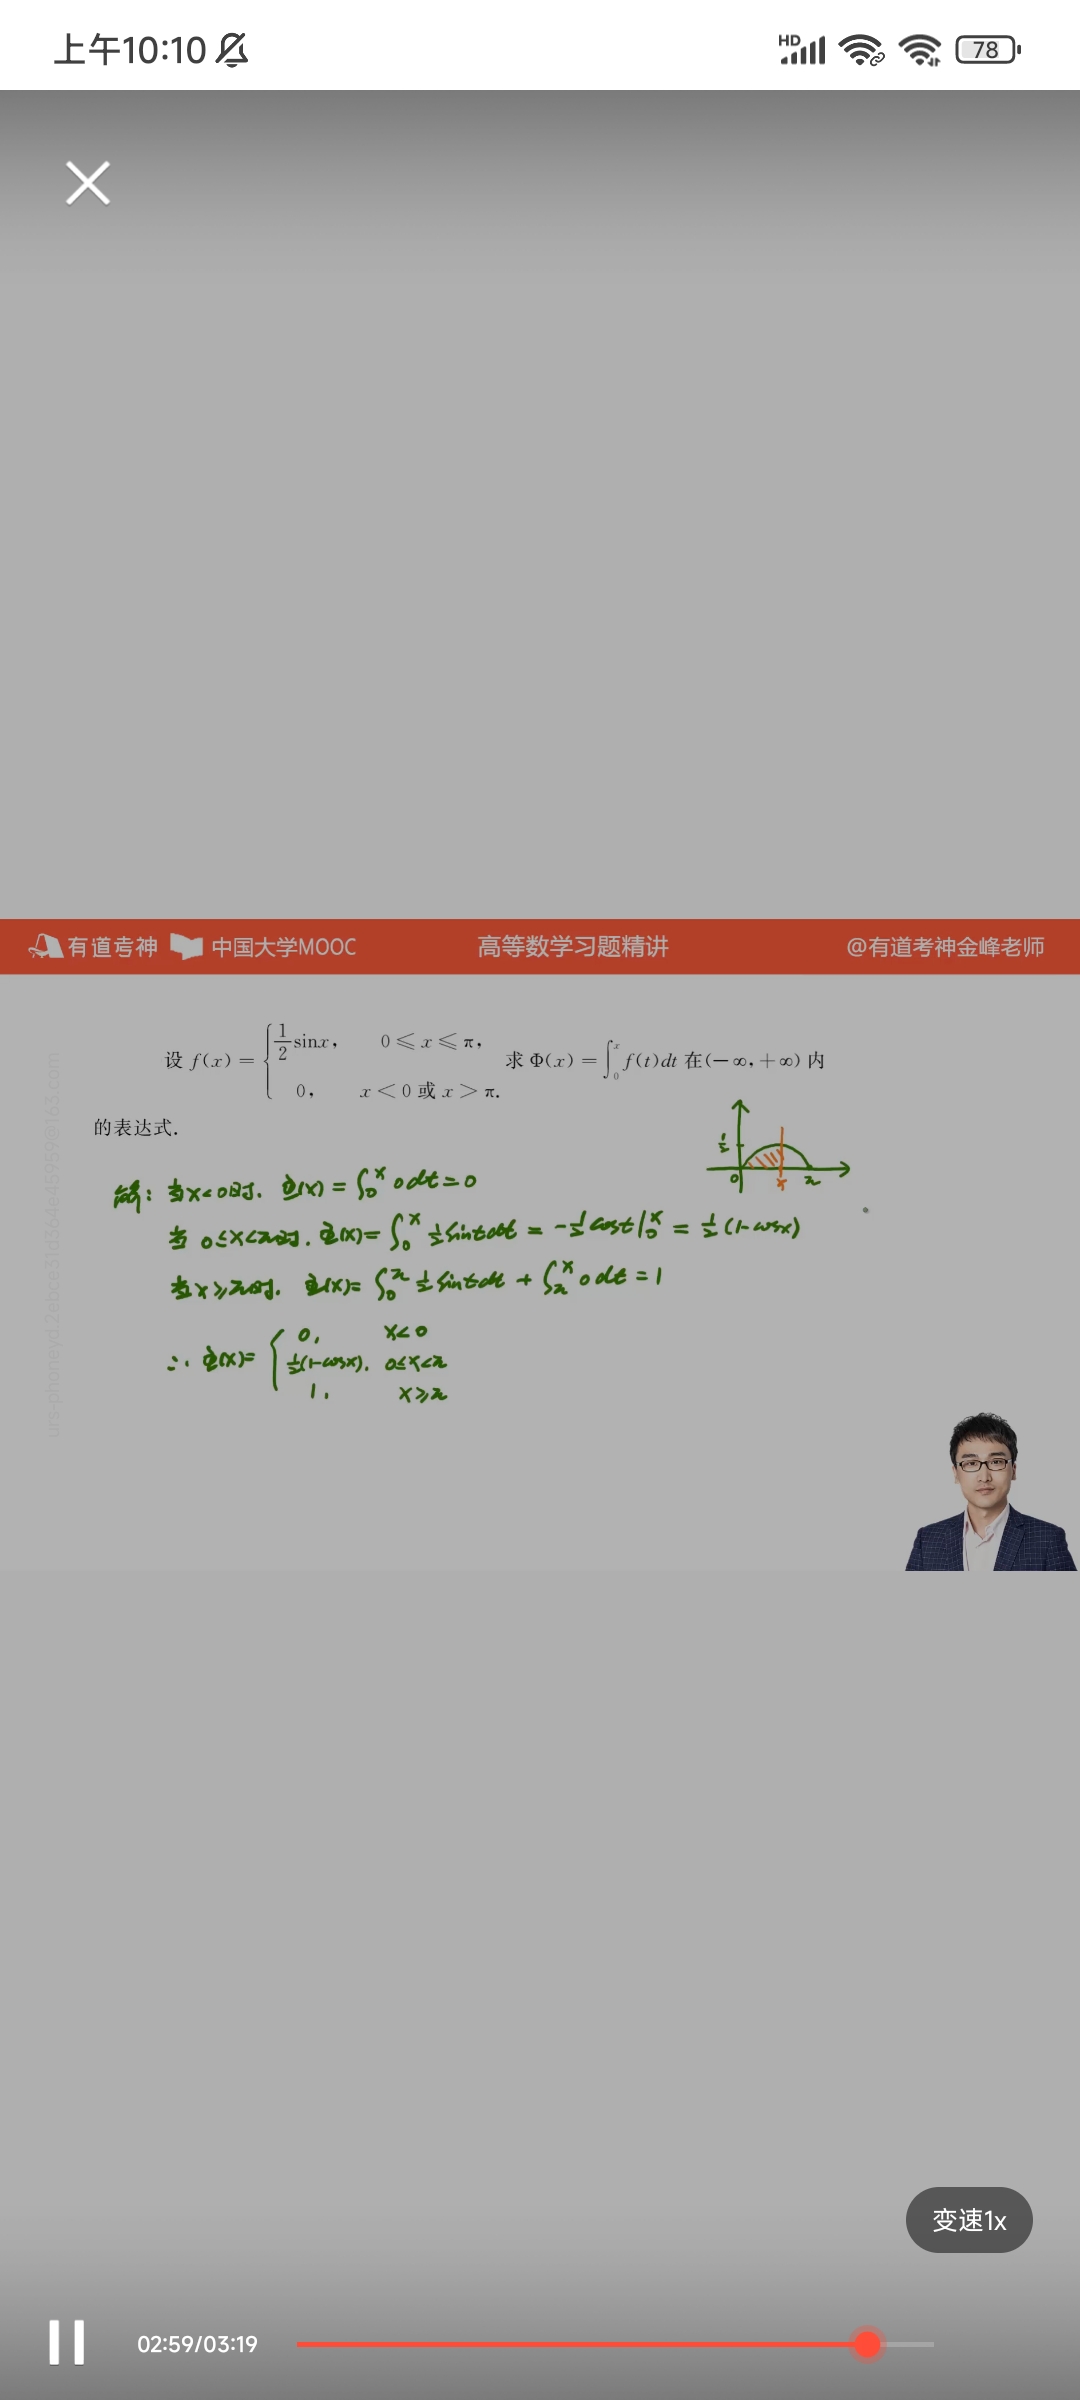 上午10:10 HD 78
有道考神 中国大学MOOC 高等数学习题精讲 @有道考神金峰老师
设 f(x) = { 1/2 sinx, 0 ⩽ x ⩽ π, 0, x < 0 或 x > π. 求 Φ(x) = ∫₀ˣ f(t)dt 在(−∞, +∞) 内
的表达式.
1/2 0 x π
解: 当x<0时. Φ(x) = ∫₀ˣ 0dt = 0
当 0≤x<π时. Φ(x) = ∫₀ˣ 1/2 sint dt = -1/2 cost|₀ˣ = 1/2 (1-cosx)
当x⩾π时. Φ(x) = ∫₀^π 1/2 sint dt + ∫_π^x 0dt = 1
∴ Φ(x) = { 0, x<0
1/2(1-cosx), 0≤x<π
1, x⩾π
变速1x
02:59/03:19